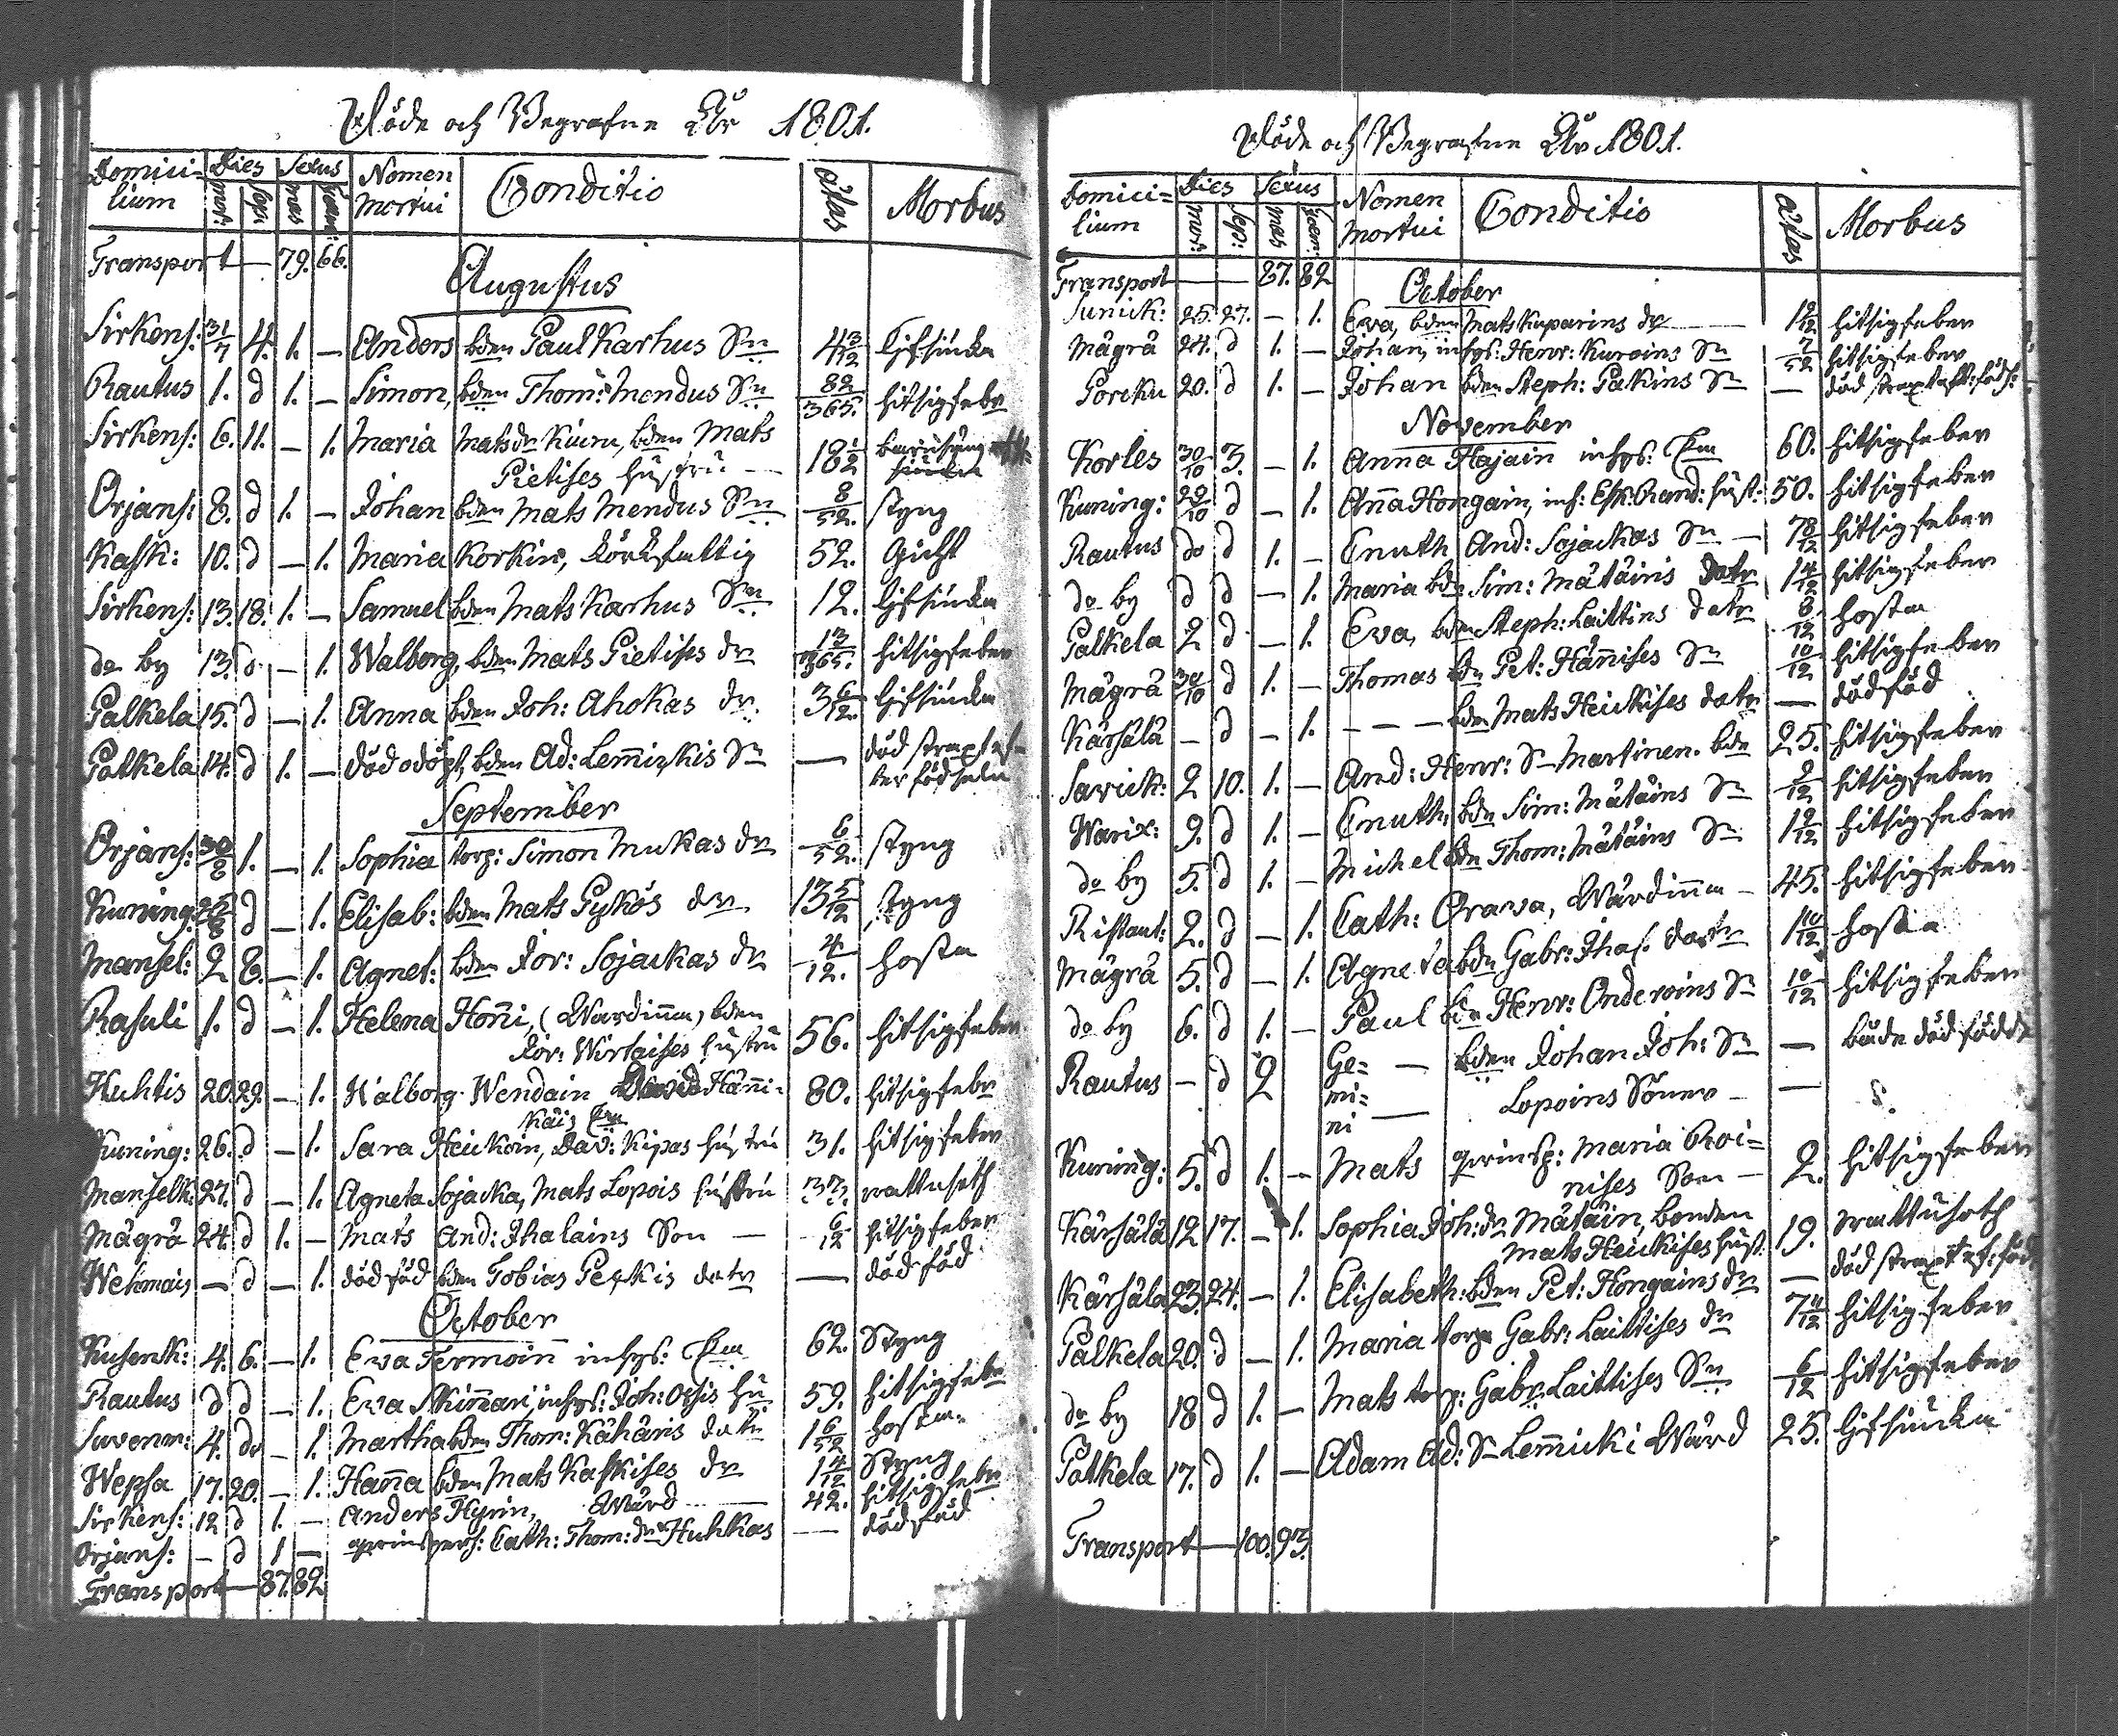 Döde och Begrafne Åhr 1801.
Domici= Dies Sexus Nomen Conditio Ætas Morbus
lium mor: sep: mas foem: Mortui
Transport — 79. 66.
Augustus
Sirkens: 31/7 4. 1. — Anders bden Paul Karhus Sn 4 3/12 lifsiuka
Rautus 1. d 1. — Simon, bden Thom: Mendus Sn 82/365. hitsig feber
Sirkens: 6. 11. — 1. Maria Matsdr Kiuru, bden Mats
Pietises hustru —
Orjans: 8. d 1. — Johan bden Mats Mendus Sn 8/52. styng
Kask: 10. d — 1. Maria Korkin, 52. Gickt
Sirkens: 13. 18. 1. — Samuel bden Mats Karhus Sn 12. lifsiuka
do by 13. d — 1. Walborg, bden Mats Pietises dr 13/365. hitsig feber
Palkela 15. d — 1. Anna bden Joh: Ahokas dr. 3 6/12. lifsiuka
Palkela 14. d 1. — död odöpt, bden Ad: Lemickis Sn — död straxt ef-
ter födseln
September
Orjans: 30/8 1. — 1. Sophia torp: Simon Mukas dr 6/52. styng
Kuning: d — 1. Elisab: bden Mats Pykös dr 13 5/12 styng
Mansel: 2 8. — 1. Agnet: bden Jör: Sojackas dr 4/12. hosta
Rasuli 1. d — 1. Helena Honi, (Wärdinna) bden
Jör: Wirtaises hustru 56. hitsig feber
Huhtis 20. 29. — 1. Walborg Wendain David Häni- 80. hitsig feber
Käis Enk
Kuning: 26. d — 1. Sara Heickoin, Dav: Kipas hustru 31. hitsig feber
Manselk: 27. d — 1. Agneta Sojacka, Mats Lopois hustru 33. wattusoth
Mägrä 24. d 1. — Mats And: Ihalains Son — 6/12 hitsig feber
Wehmais — d — 1. död föd bden Tobias Peskis datr — död föd
October
Kusenk: 4. 6. — 1. Eva Termoin inhys: Enk 62. Styng
Rautus d d — 1. Eva Skinnari, inhys: Joh: hu 59. hitsig feber
Suvenm: 4. do — 1. Martha bden Thom: Kähäris datr 1 6/52 hosta.
Wepsa 17. 20. — 1. Hanna bden Mats Kaskises dr 1 4/12 Styng
Sirkens: 12 d 1. — Anders Hyrin, Wärd — 42. hitsig feber
Orjans: — d 1 — qvinspers: Cath: Thom: dr Huhkas — död föd
Transport — 87. 82
Döde och Begrafne Åhr 1801.
Domici= Dies Sexus Nomen Conditio Ætas Morbus
lium mor: sep: mas foem: Mortui
Transport — — 87. 82
October
Sunick: 25. 27. — 1. Eva, bden Mats Kuparins dr — 1 2/12 hitsig feber
Mägrä 24. d 1. — Johan, inhys: Henr: Kuroins Sn 7/52 hitsig feber
Porcku 20. d 1. — Johan bden Steph: Pakins Sn — död straxt eft: föds:
November
Korles 30/10 3. — 1. Anna Hajain inhys: Enk 60. hitsig feber
Kuning: 29/10 d — 1. Anna Hongain, inh: Esk: Rand: hust: 50. hitsig feber
Rautus do d 1. — Cnuth And: Sojackas Sn — 7 8/12 hitsig feber
do by d d — 1. Maria bdn Sim: Mätäins Datr 1 4/12 hitsig feber
Palkela 2 d — 1. Eva, bden Steph: Laittins datr 8/12 hosta
Mägrä 30/10 d 1. — Thomas bdn Pet: Hännises Sn 10/12 hitsig feber
Kärsälä — d — 1. — — — bdn Mats Heickises datr — död föd
Savick: 2 10. 1. — And: Henr: Sn Martinen. bde 25. hitsig feber
Warix: 9. d 1. — Cnuth, bdn Sim: Mätäins Sn 9/12 hitsig feber
do by 5. d 1. — Michel bdn Thom: Mätäins Sn 1 2/12 hitsig feber
Ristant: 2. d — 1. Cath: Orawa, Wärdinna — 45. hitsig feber
Mägrä 5. d — 1. Agneta bdn Gabr: Ihal. dottr 1 10/12 hosta
do by 6. d 1. — Paul bdn Henr: Onderoins Sn 10/12 hitsig feber
Rautus — d 2 Ge= — bden Johan Joh: Sn — både död födde
mi= — Lopoins Söner — —
ni
Kuning: 5. d 1. — Mats qvinsp: Maria Roi=
nises Son — 2. hitsig feber
Kärsälä 12 17. — 1. Sophia Joh: dr Mätäin, bonden
Mats Heickises hust: 19. wattusoth
Kärsälä 23. 24. — 1. Elisabeth: bden Pet: Hongains dr — död straxt ef: föd
Palkela 20. d — 1. Maria torp Gabr: Laittises dr 7 4/12 hitsig feber
do by 18 d 1. — Mats torp: Gabr: Laittises Sn 6/12 hitsig feber
Palkela 17. d 1. — Adam Ad: Sn Lemicki Wärd 25. lifsiuka
Transport — 100. 93.